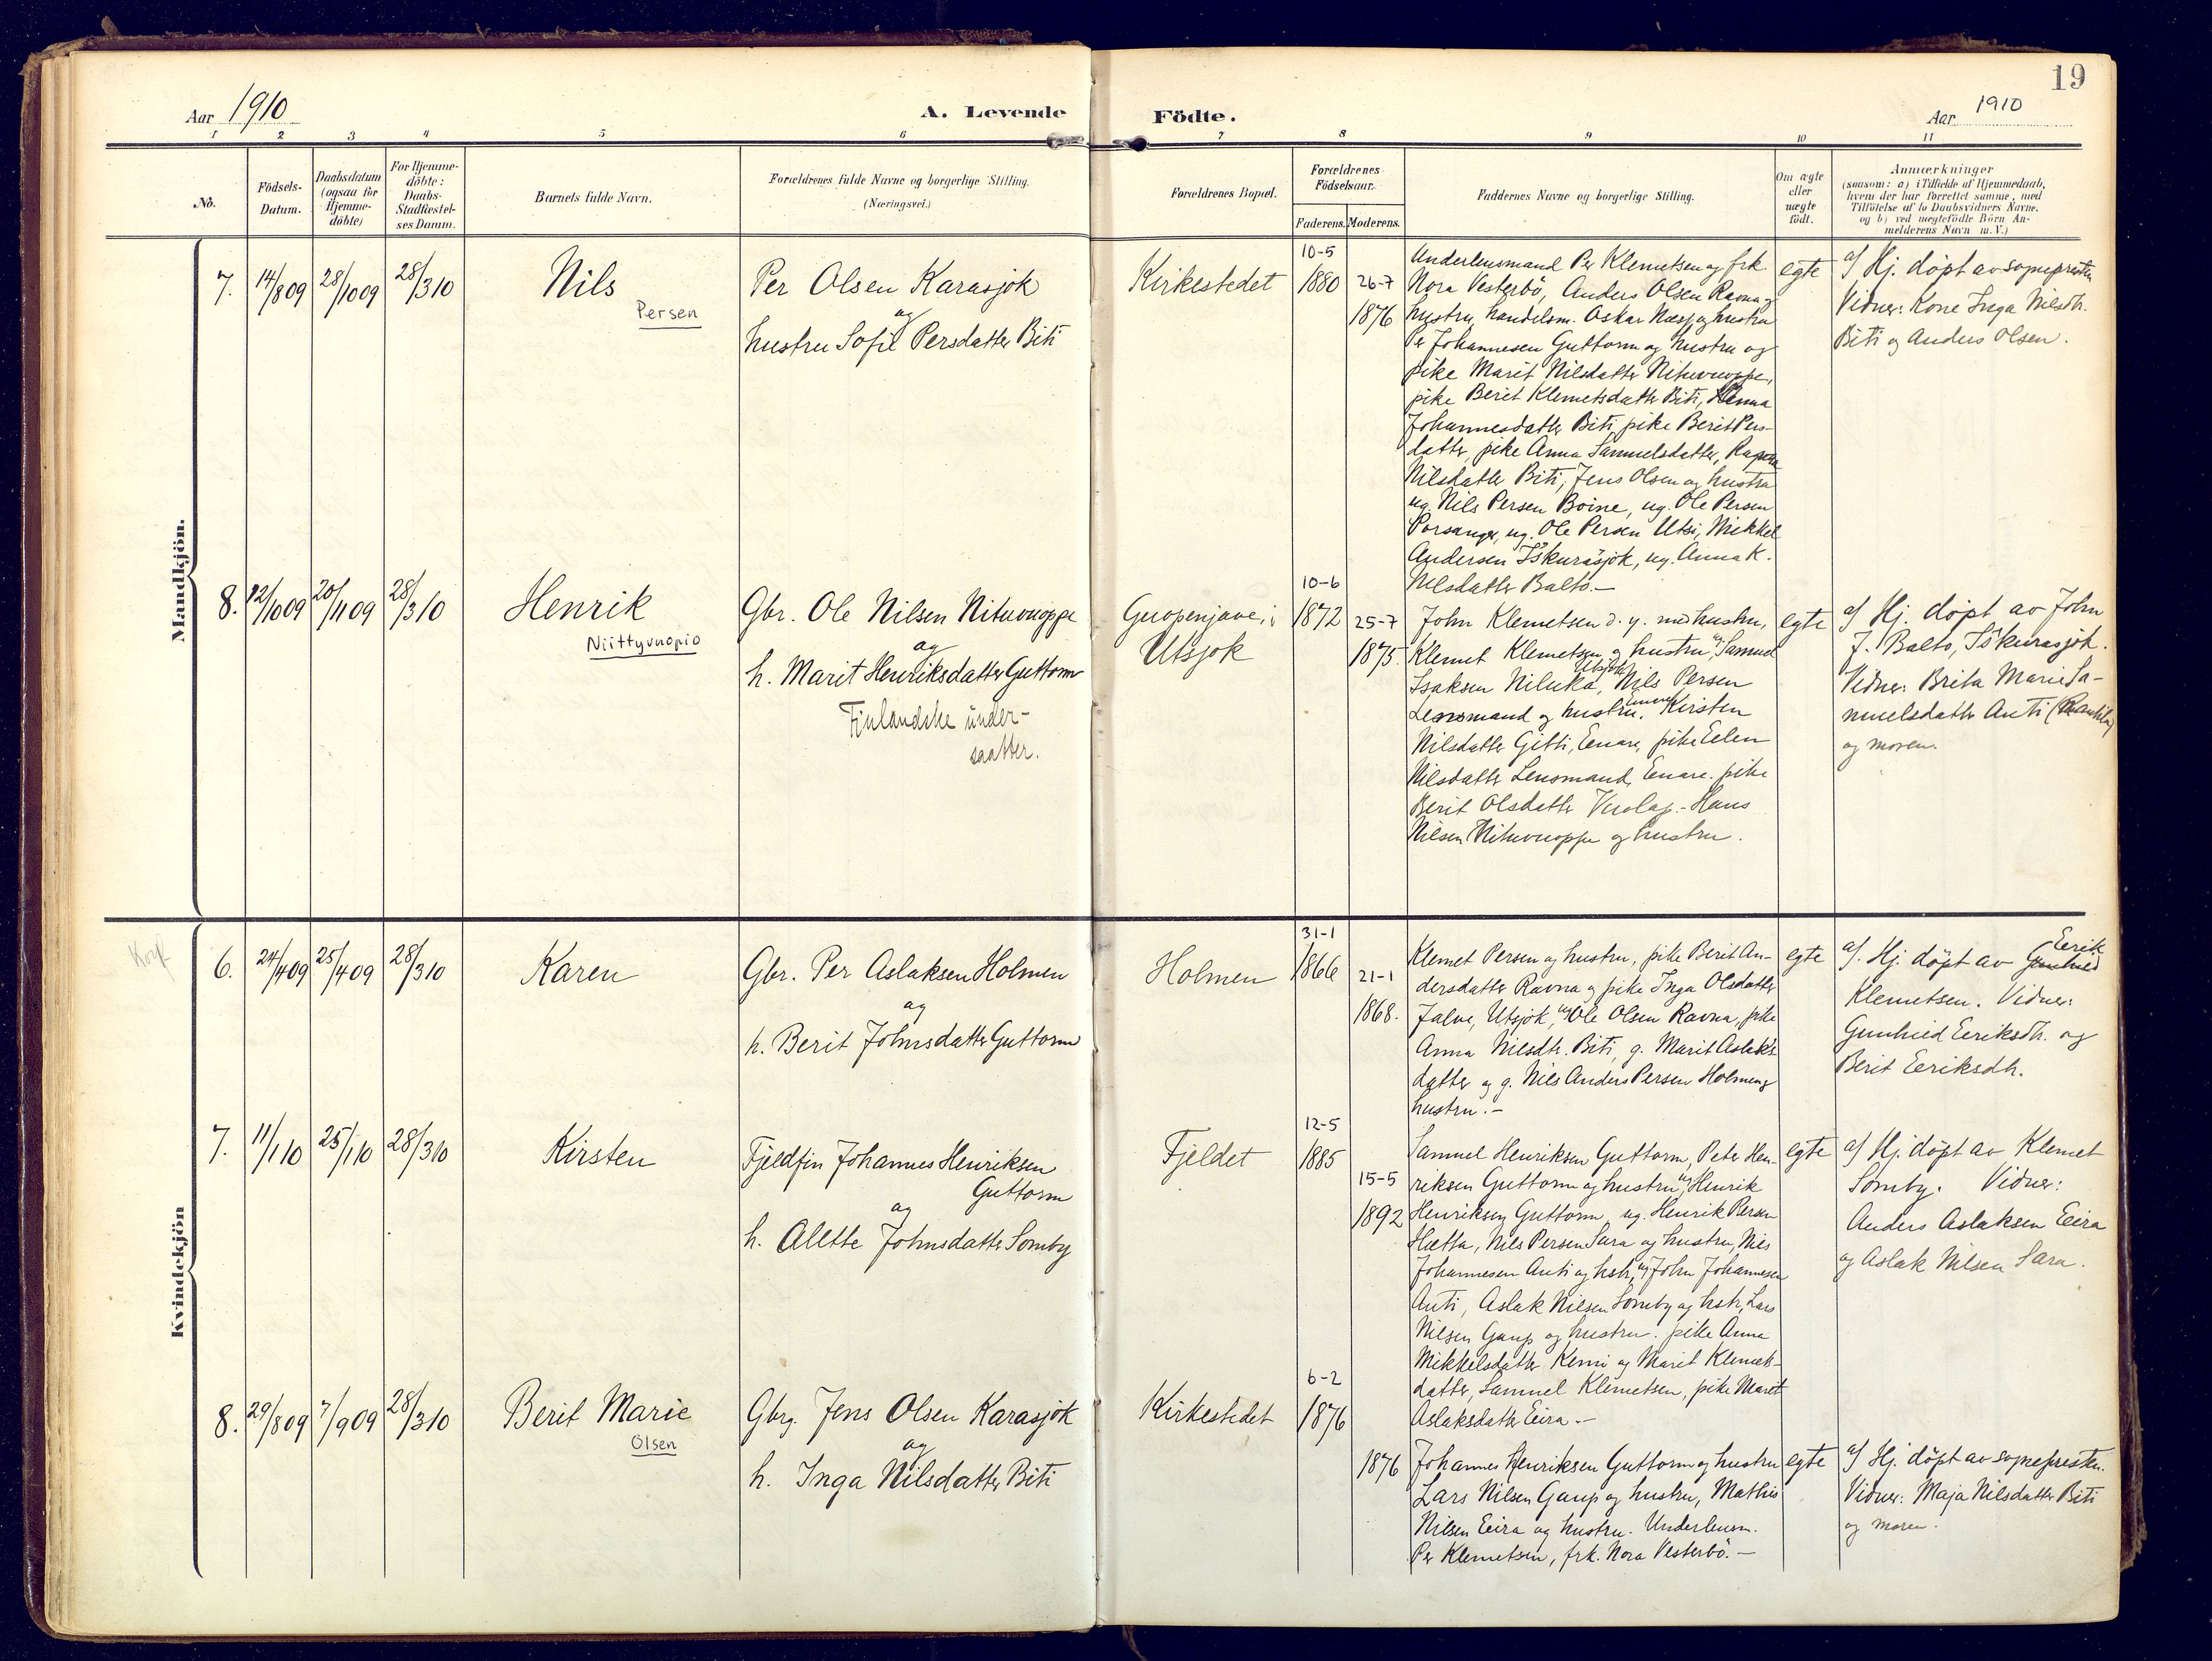 19
Aar 1910
A. Levende
Födte.
Aar 1910
1 2 3 4 5 6 7 8 9 10 11
No.
Födsels-
Datum.
Daabsdatum
(ogsaa for
Hjemme-
döbte)
For Hjemme-
döbte:
Daabs-
Stadfæstel-
ses Datum.
Barnets fulde Navn.
Forældrenes fulde Navne og borgerlige Stilling.
(Næringsvei.)
Forældrenes Bopæl.
Forældrenes
Födselsaar.
Faderens. Moderens.
Faddernes Navne og borgerlige Stilling.
Om ægte
eller
uægte
födt.
Anmærkninger
(saasom: a) i Tilfælde af Hjemmedaab,
hvem der har forrettet samme, med
Tilföielse af to Daabsvidners Navne,
og b) ved uægtefödte Börn An-
melderens Navn m. V.)
Mandkjön.
7. 14/8 09 28/10 09 28/3 10
Nils
Persen
Per Olsen Karasjok
og
hustru Sofie Persdatter Biti
Kirkestedet
10-5
1880
26-7
1876
Underlensmand Per Klemetsen og frk.
Nora Vesterbö, Anders Olsen Ravna og
hustru, handelsm. Oskar Næss og hustru
Per Johannesen Guttorm og hustru og
pike Marit Nilsdatter Nituvuoppe,
pike Berit Klemetsdatter Biti, Anna
Johannesdatter Biti, pike Berit Pers-
datter, pike Anna Samuelsdatter,
Nilsdatter Biti, Jens Olsen og hustru
ug. Nils Persen Boine, ug. Ole Persen
Porsanger, ug. Ole Persen Utsi, Mikkel
Andersen Iskurasjok, ug. Anna K.
Nilsdatter Balto.-
egte
a/ Hj. döpt av sognepresten
Vidner: Kone Inga Nilsdtr.
Biti og Anders Olsen.
8. 12/10 09 20/11 09 28/3 10
Henrik
Niittyvuopio
Gbr. Ole Nilsen Nituvuoppe
og
h. Marit Henriksdatter Guttorm
Finlandske under-
saatter.
Guopenjave, i
Utsjok
10-6
1872
25-7
1875.
John Klemetsen d. y. med hustru,
Klemet Klemetsen og hustru, ug. Samuel
Isaksen Niluka, Utsjok, Nils Persen
Lensmand og hustru, Enare. Kirsten
Nilsdatter Gitti, Enare, pike Elen
Nilsdatter Lensmand, Enare. pike
Berit Olsdatter Vuolap.- Hans
Nilsen Nituvuoppe og hustru.
egte
a/ Hj. döpt av John
J. Balto, Iskurasjok.
Vidner: Brita Marie Sa-
muelsdatter Anti
og moren.
Kvindekjön
6. 24/4 09 25/4 09 28/3 10
Karen
Gbr. Per Aslaksen Holmen
og
h. Berit Johnsdatter Guttorm
Holmen
31-1
1866
21-1
1868.
Klemet Persen og hustru, pike Berit An-
dersdatter Ravna og pike Inga Olsdatter
Jalve, Utsjok, ug. Ole Olsen Ravna, pike
Anna Nilsdtr. Biti, g. Marit Aslaks-
datter og g. Nils Anders Persen Holmen og
hustru.-
egte
a/. Hj. döpt av Gunhild Eerik
Klemetsen. Vidner:
Gunhild Eeriksdtr. og
Berit Eeriksdtr.
7. 11/1 10 25/1 10 28/3 10
Kirsten
Fjeldfin Johannes Henriksen
Guttorm
og
h. Alette Johnsdatter Somby
Fjeldet
12-5
1885
15-5
1892
Samuel Henriksen Guttorm, Peter Hen-
riksen Guttorm og hustru, ug. Henrik
Henriksen Guttorm, ug. Henrik Persen
Hætta, Nils Persen Sara og hustru, Nils
Johannesen Anti og hstr, ug. John Johannesen
Anti, Aslak Nilsen Somby og hstr, Lars
Nilsen Gaup og hustru. pike Anna
Mikkelsdatter Kemi og Marit Klemets-
datter, Samuel Klemetsen, pike Maret
Aslaksdatter Eira.-
egte
a/ Hj. döpt av Klemet
Somby. Vidner:
Anders Aslaksen Eira
og Aslak Nilsen Sara.
8. 29/8 09 7/9 09 28/3 10
Berit Marie
Olsen
Gbrg. Jens Olsen Karasjok
og
h. Inga Nilsdatter Biti
Kirkestedet
6-2
1876
1876
Johannes Henriksen Guttorm og hustru
Lars Nilsen Gaup og hustru, Mathis
Nilsen Eira og hustru. Underlensm.
Per Klemetsen, frk. Nora Vesterbö.-
egte
a/ Hj. döpt av sognepresten.
Vidner: Maja Nilsdatter Biti
og moren.